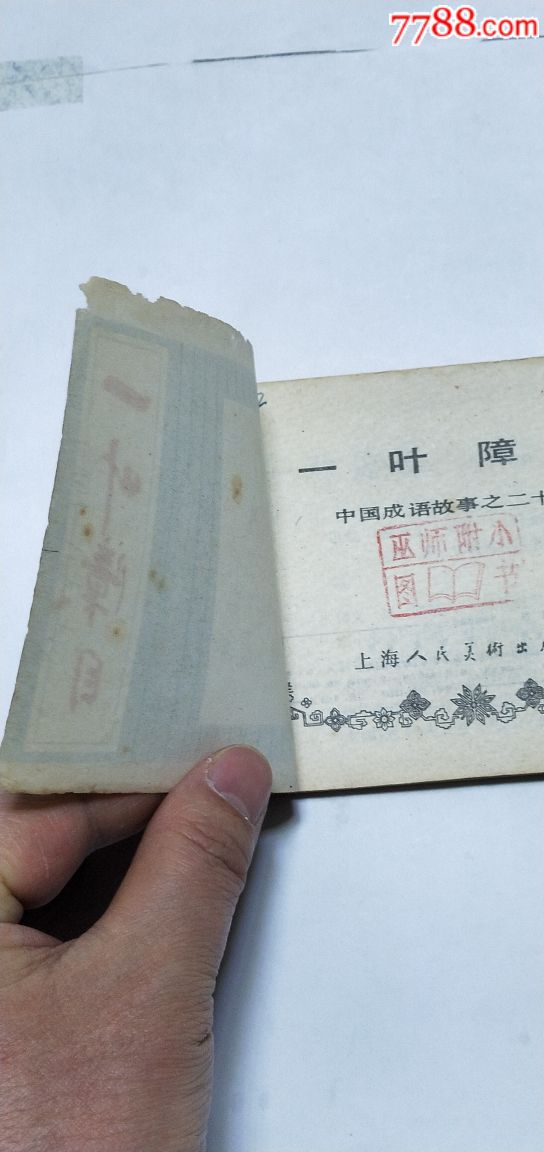 7788.com
一叶障目
一叶障
中国成语故事之二十
巫师附小
图书
上海人民美術出